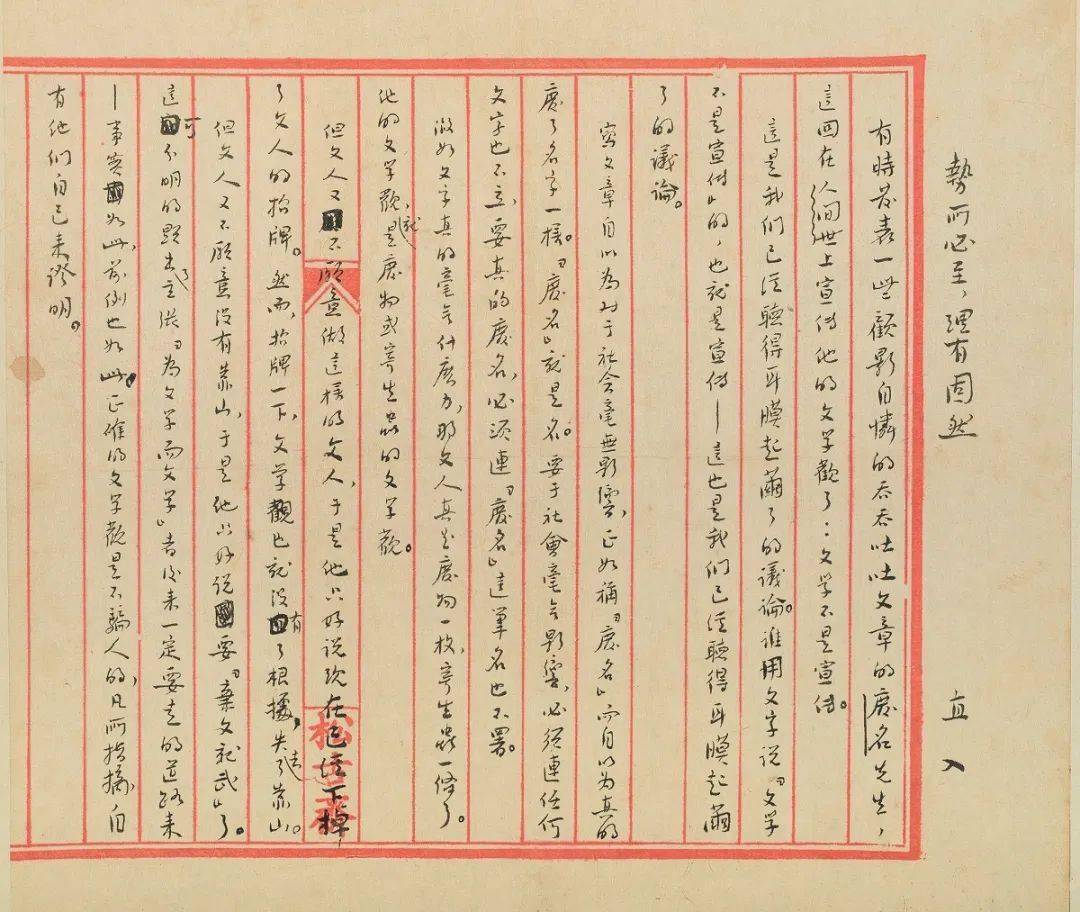 勢所必至，理有固然
直入
有時發表一些顧影自憐的吞吞吐吐文章的廢名先生，
這回在人间世上宣傳他的文学觀了：文学不是宣傳。
這是我们已经聽得耳膜起繭了的議論。谁用文字说「文学
不是宣傳」的，也就是宣傳——這也是我们已经聽得耳膜起繭
了的議論。
寫文章自以为对于社会毫無影響，正如稱「廢名」而自以为真的
廢了名字一樣。「廢名」就是名。要于社會毫无影響，必须连任何
文字也不立，要真的廢名，必须連「廢名」這筆名也不署。
假如文字真的毫无什麽力，那文人真是廢物一枚，寄生蟲一條了。
他的文学觀，就是廢物或寄生蟲的文学觀。
但文人又不願意做這樣的文人，于是他只好说现在已经下掉
了文人的招牌。然而，招牌一下，文学觀也就没有了根據，失去了靠山。
但文人又不願意没有靠山，于是他只好说要「棄文就武」了。
這可分明的顯出了主張「為文学而文学」者後来一定要走的道路来
——事实如此，前例也如此。正確的文学觀是不騙人的，凡所指摘，自
有他们自己来證明。
松